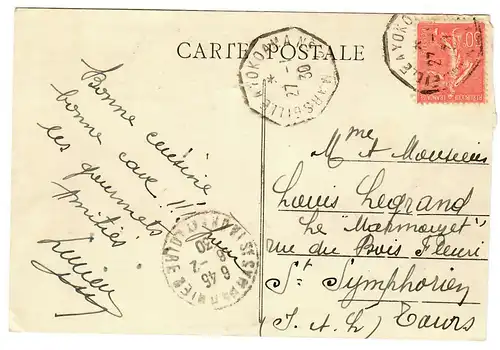 CARTE POSTALE
MARSEILLE A YOKOHAMA N°
* 27 -1
30
MARSEILLE A YOKOHAMA
* 27 -1
30
50
Bonne cuisine
bonne cave !!!
les gourmets
Amitiés
Lucien
6 45
-2
30
Mme et Monsieur
Louis Legrand
Le "Marmouzet"
rue du Bois Fleuri
St Symphorien
(I. et L) Tours